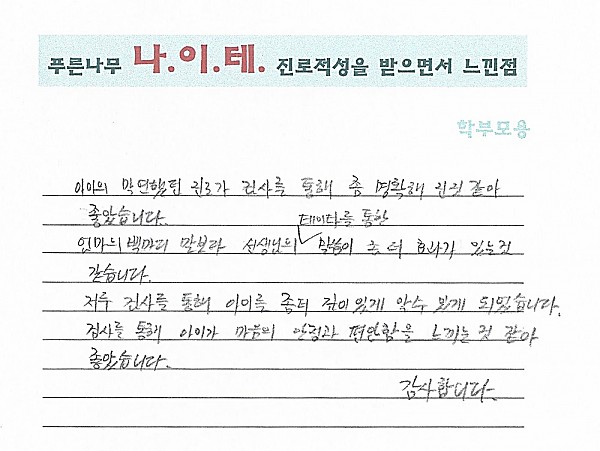 푸른나무 나.이.테. 진로적성을 받으면서 느낀점
학부모용
아이의 막연했던 진로가 검사를 통해 좀 명확해 진것 같아
좋았습니다.
데이타를 통한
엄마의 백마디 말보다 선생님의 말씀이 좀 더 효과가 있는것
같습니다.
저두 검사를 통해 아이를 좀더 깊이있게 알수 있게 되었습니다.
검사를 통해 아이가 마음의 안정과 편안함을 느끼는 것 같아
좋았습니다.
감사합니다.